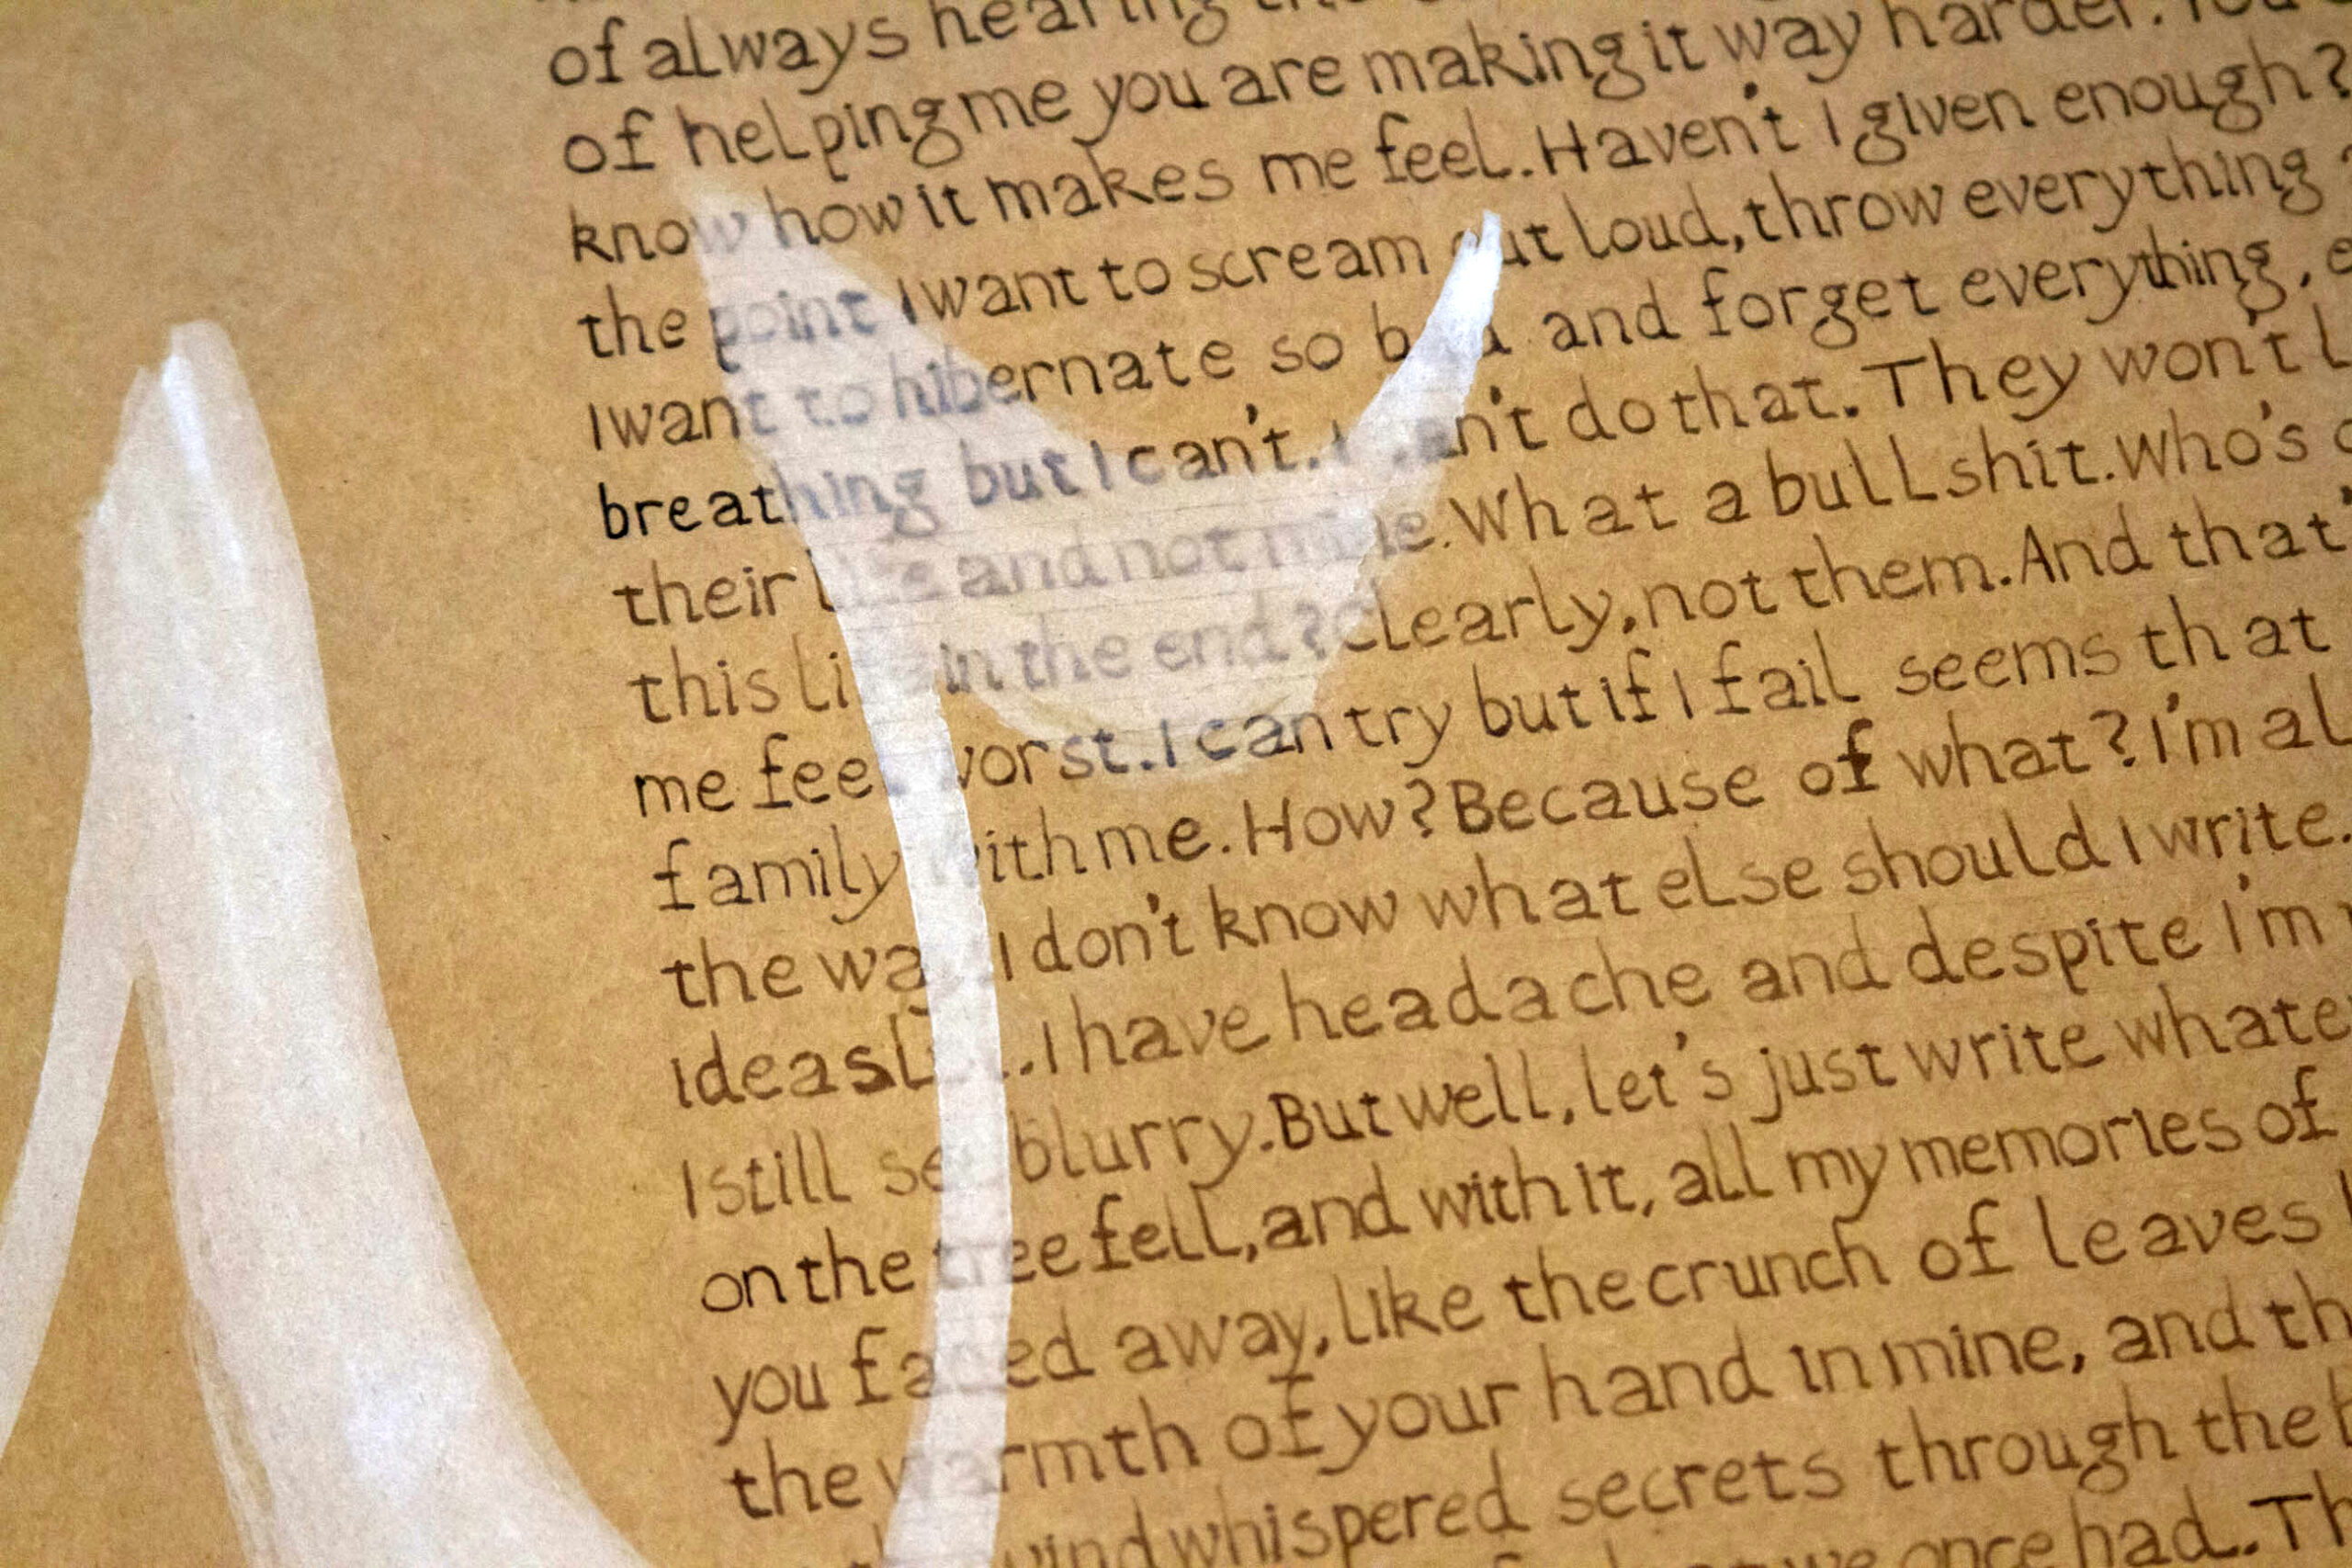 of always hearing
of helping me you are making it way harder. You
know how it makes me feel. Haven't I given enough?
the point I want to scream out loud, throw everything
I want to hibernate so bad and forget everything,
breathing but I can't. I can't do that. They won't
their life and not mine. What a bullshit. Who's
this life in the end? Clearly, not them. And that'
me feel worst. I can try but if I fail seems that
family with me. How? Because of what? I'm al
the way. I don't know what else should I write.
ideas . I have headache and despite i'm
I still see blurry. But well, let's just write whate
on the tree fell, and with it, all my memories of
you faded away, like the crunch of leaves
the warmth of your hand in mine, and th
wind whispered secrets through the
we once had. Th